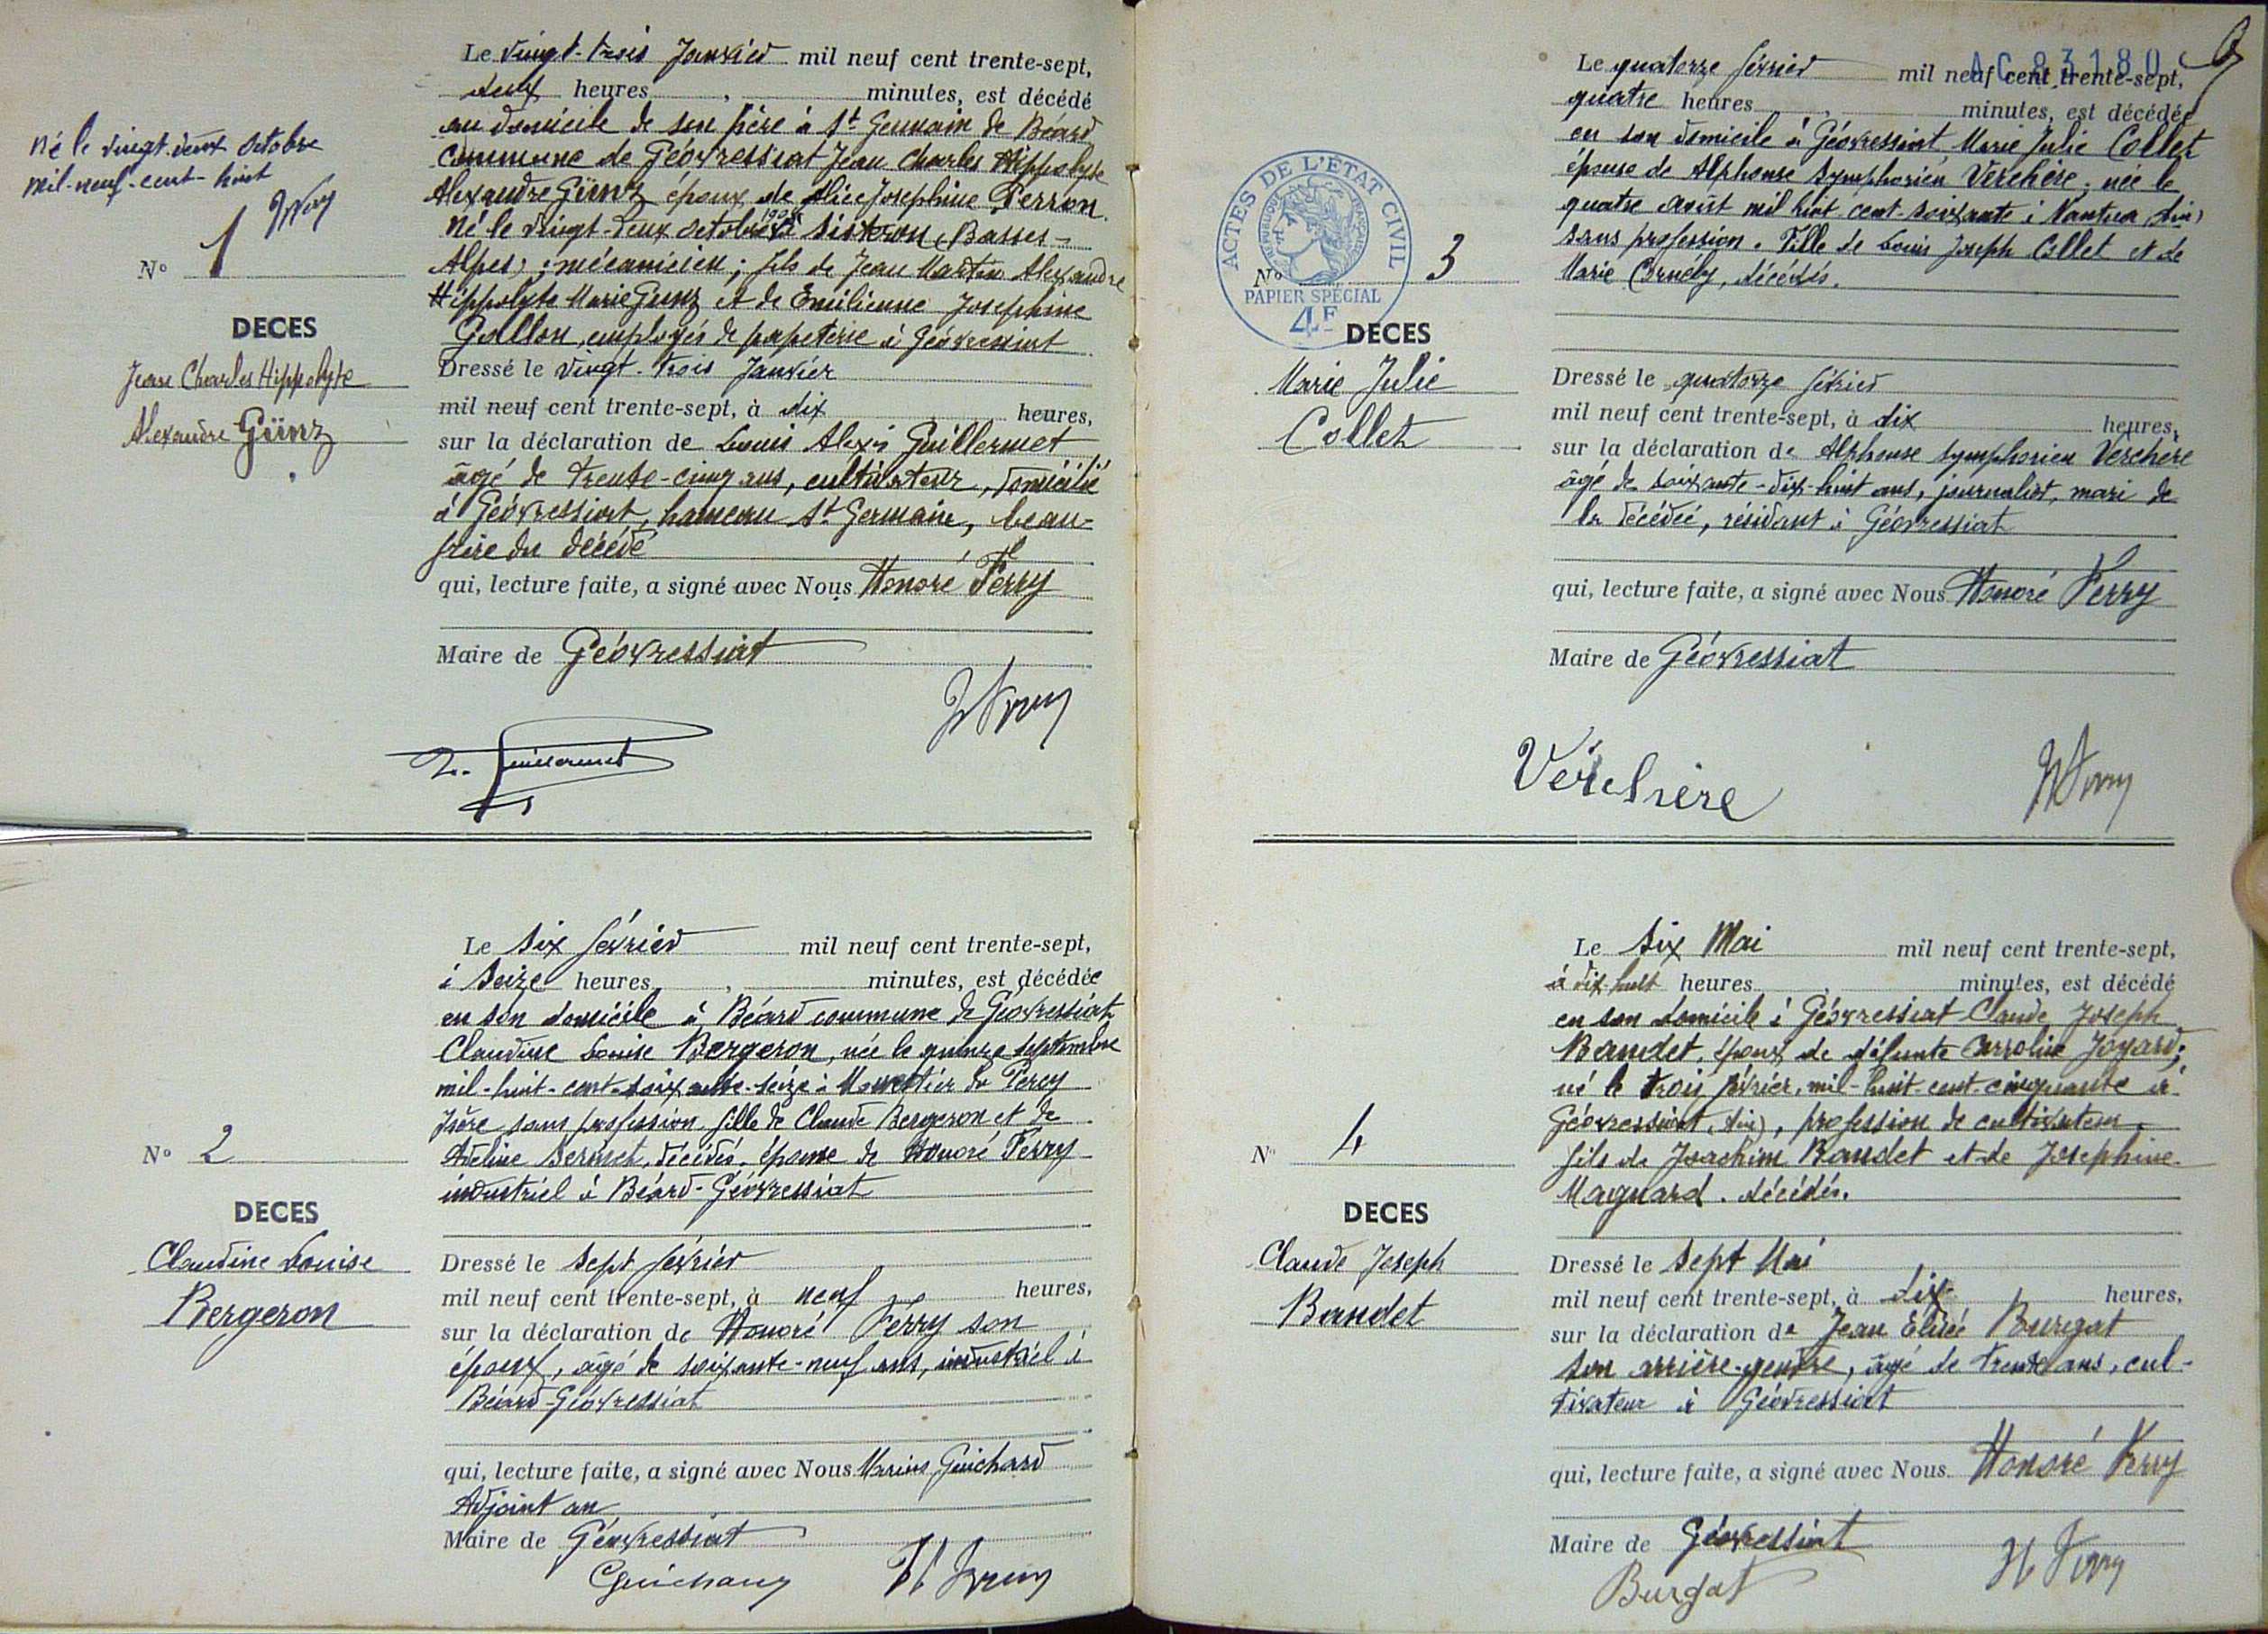 né le vingt-deux octobre
mil-neuf-cent-huit
N° 1
DECES
Jean Charles Hippolyte
Alexandre Günz
Le vingt-trois Janvier mil neuf cent trente-sept,
deux heures, minutes, est décédé
au domicile de son père à St Germain de Béard
commune de Géovressiat Jean Charles Hippolyte
Alexandre Günz époux de Alice Josephine Perron.
Né le vingt-deux octobre 1908 à Sisteron (Basses-
Alpes) ; mécanicien ; fils de Jean Martin Alexandre
Hippolyte Marie Gunz et de Emilienne Josephine
Gallon, employés de papeterie à Géovressiat
Dressé le vingt-trois Janvier
mil neuf cent trente-sept, à dix heures,
sur la déclaration de Louis Alexis Guillermet
âgé de trente-cinq ans, cultivateur, domicilié
à Géovressiat, hameau St Germain, beau-
frère du décédé
qui, lecture faite, a signé avec Nous Honoré Ferry
Maire de Géovressiat
L. Guillermet
H Ferry
N° 2
DECES
Claudine Louise
Bergeron
Le six février mil neuf cent trente-sept,
à seize heures, minutes, est décédée
en son domicile à Béard commune de Géovressiat
Claudine Louise Bergeron, née le quinze septembre
mil-huit-cent-soixante-seize à Monestier du Percy
Isère sans profession fille de Claude Bergeron et de
Adeline décédés, épouse de Honoré Ferry
industriel à Béard-Géovressiat
Dressé le sept février
mil neuf cent trente-sept, à neuf heures,
sur la déclaration de Honoré Ferry son
époux, âgé de soixante-neuf ans, industriel à
Béard-Géovressiat
qui, lecture faite, a signé avec Nous Marius Guichard
Adjoint au
Maire de Géovressiat
Guichard
H Ferry
AC 83180
ACTES DE L'ÉTAT CIVIL
RÉPUBLIQUE FRANÇAISE
PAPIER SPÉCIAL
4F
N° 3
DECES
Marie Julie
Collet
Le quatorze février mil neuf cent trente-sept,
quatre heures, minutes, est décédée
en son domicile à Géovressiat, Marie Julie Collet
épouse de Alphonse Symphorien Verchère ; née le
quatre août mil huit-cent-soixante à Nantua (Ain)
sans profession. Fille de Louis Joseph Collet et de
Marie Cornély, décédés.
Dressé le quatorze février
mil neuf cent trente-sept, à dix heures,
sur la déclaration de Alphonse Symphorien Verchère
âgé de soixante-dix-huit ans, journalier, mari de
la décédée, résidant à Géovressiat
qui, lecture faite, a signé avec Nous Honoré Ferry
Maire de Géovressiat
Verchère
H Ferry
N° 4
DECES
Claude Joseph
Bandet
Le six Mai mil neuf cent trente-sept,
à dix-huit heures, minutes, est décédé
en son domicile à Géovressiat Claude Joseph
Bandet, époux de défunte Carroline Joyard ;
né le trois février, mil-huit-cent-cinquante à
Géovressiat (Ain), profession de cultivateur.
fils de Joachim Bandet et de Josephine
Magnard. décédés.
Dressé le sept Mai
mil neuf cent trente-sept, à dix heures,
sur la déclaration de Jean Elisée Burgat
son arrière-gendre, âgé de trente ans, cul-
tivateur à Géovressiat
qui, lecture faite, a signé avec Nous Honoré Ferry
Maire de Géovressiat
Burgat
H Ferry